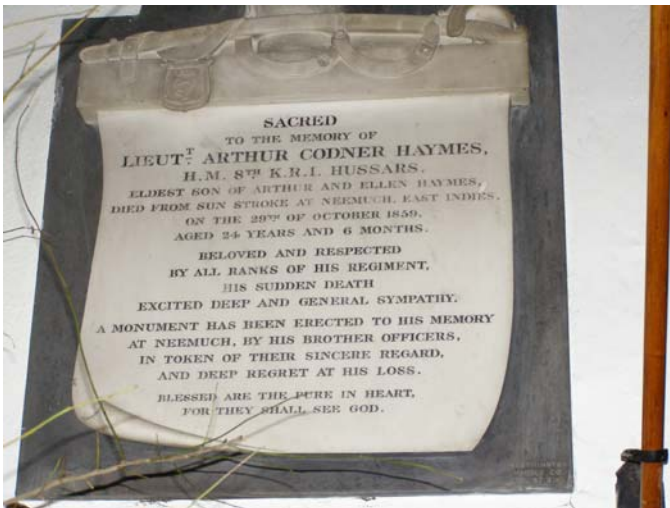 SACRED
TO THE MEMORY OF
LIEUT.T ARTHUR CODNER HAYMES,
H.M. 8TH K.R.I. HUSSARS.
ELDEST SON OF ARTHUR AND ELLEN HAYMES,
DIED FROM SUN STROKE AT NEEMUCH, EAST INDIES,
ON THE 29TH OF OCTOBER 1859,
AGED 24 YEARS AND 6 MONTHS.
BELOVED AND RESPECTED
BY ALL RANKS OF HIS REGIMENT,
HIS SUDDEN DEATH
EXCITED DEEP AND GENERAL SYMPATHY.
A MONUMENT HAS BEEN ERECTED TO HIS MEMORY
AT NEEMUCH, BY HIS BROTHER OFFICERS,
IN TOKEN OF THEIR SINCERE REGARD,
AND DEEP REGRET AT HIS LOSS.
BLESSED ARE THE PURE IN HEART,
FOR THEY SHALL SEE GOD.